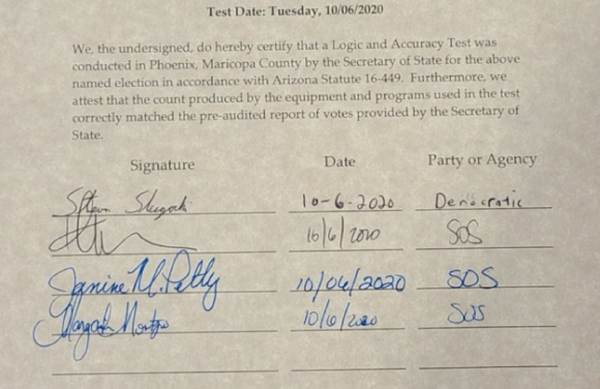 Test Date: Tuesday, 10/06/2020
We, the undersigned, do hereby certify that a Logic and Accuracy Test was
conducted in Phoenix, Maricopa County by the Secretary of State for the above
named election in accordance with Arizona Statute 16-449. Furthermore, we
attest that the count produced by the equipment and programs used in the test
correctly matched the pre-audited report of votes provided by the Secretary of
State.
Signature Date Party or Agency
10-6-2020 Democratic
10/6/2020 SOS
Janine M. Petty 10/06/2020 SOS
10/6/2020 SOS